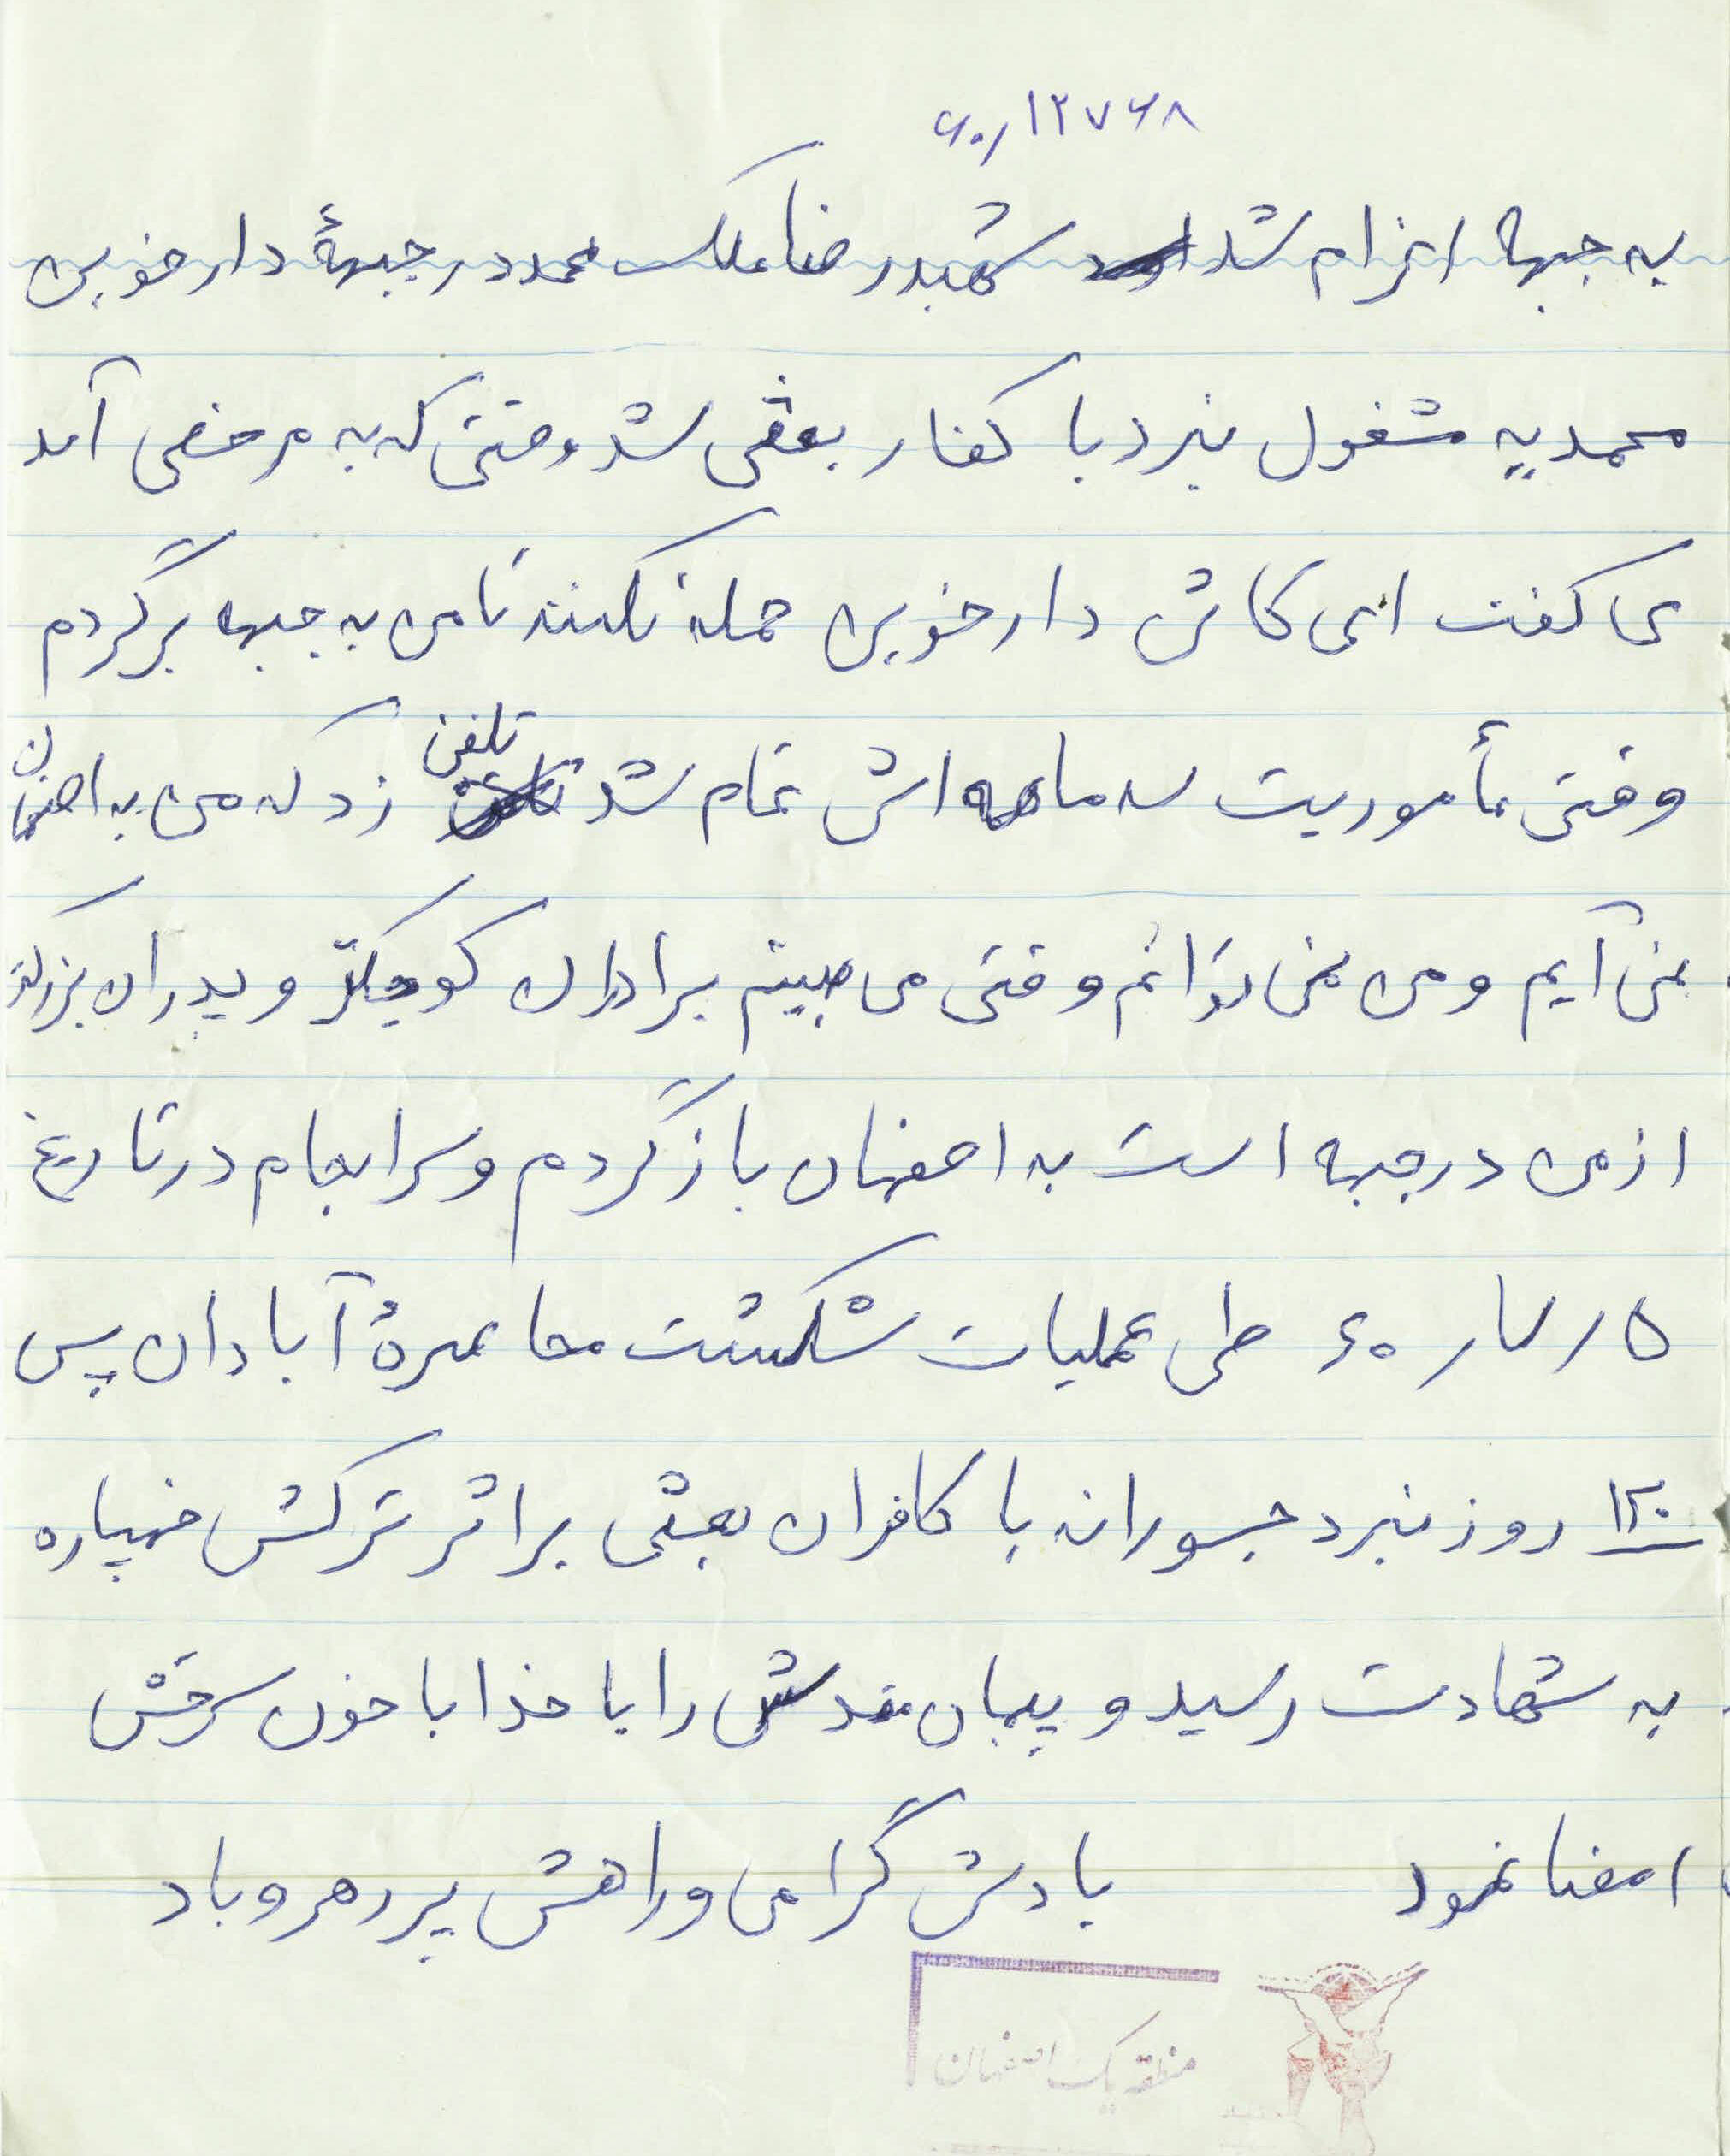 ۶۰/۱۲۷۶۸
به جبهه اعزام شد شهید رضا ملک محمد در جبههٔ دارخوین
محمدیه مشغول نبرد با کفار بعثی شد وقتی که به مرخصی آمد
می گفت ای کاش دارخوین حمله نکنند تا من به جبهه برگردم
وقتی مأموریت سه ماهه اش تمام شد تلفن زد که من به اصفهان
نمی آیم و من نمی توانم وقتی می بینم برادران کوچکتر و پدران بزرگتر
از من در جبهه است به اصفهان بازگردم و سرانجام در تاریخ
۵ / ۷ / ۶۰ طی عملیات شکست محاصرهٔ آبادان پس
۱۲۰ روز نبرد جسورانه با کافران بعثی بر اثر ترکش خمپاره
به شهادت رسید و پیمان مقدسش را با خدا با خون سرخش
امضا نمود یادش گرامی و راهش پر رهرو باد
منطقه یک اصفهان